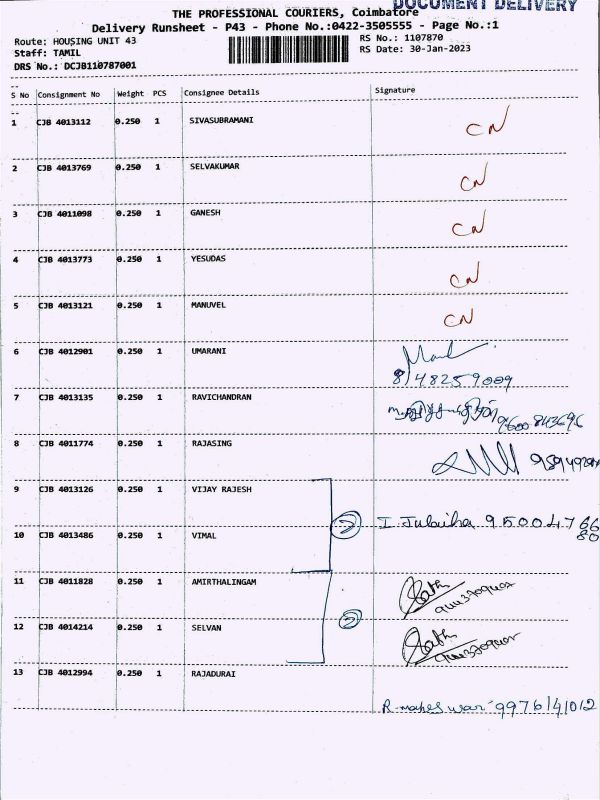 DOCUMENT DELIVERY
THE PROFESSIONAL COURIERS, Coimbatore
Delivery Runsheet - P43 - Phone No.:0422-3505555 - Page No.:1
Route: HOUSING UNIT 43 RS No.: 1107870
Staff: TAMIL RS Date: 30-Jan-2023
DRS No.: DCJB110787001
S No Consignment No Weight PCS Consignee Details Signature
1 CJB 4013112 0.250 1 SIVASUBRAMANI CN
2 CJB 4013769 0.250 1 SELVAKUMAR CN
3 CJB 4011098 0.250 1 GANESH CN
4 CJB 4013773 0.250 1 YESUDAS CN
5 CJB 4013121 0.250 1 MANUVEL CN
6 CJB 4012901 0.250 1 UMARANI
8148259009
7 CJB 4013135 0.250 1 RAVICHANDRAN
9600843696
8 CJB 4011774 0.250 1 RAJASING
9 CJB 4013126 0.250 1 VIJAY RAJESH
2 I. Jubiha 95004766
80
10 CJB 4013486 0.250 1 VIMAL
11 CJB 4011828 0.250 1 AMIRTHALINGAM
2
12 CJB 4014214 0.250 1 SELVAN
13 CJB 4012994 0.250 1 RAJADURAI
R. maheswari 9976141012